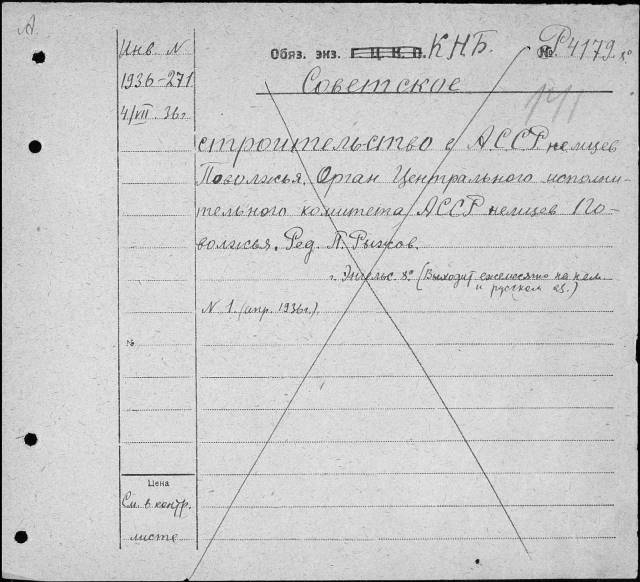 А.
Инв. N
1936-271
4/VII 36 г
Обяз. экз. Г. Ц. К. П. КНБ.
№ Р4179 8°
Советское
строительство АССР немцев
Поволжья. Орган Центрального исполни-
тельного комитета АССР немцев По-
волжья. Ред. П. Рыжов.
г. Энгельс. 8° (Выходит ежемесячно на нем.
и русском яз.)
N 1. (апр. 1936 г.).
№
Цена
См. в контр.
листе